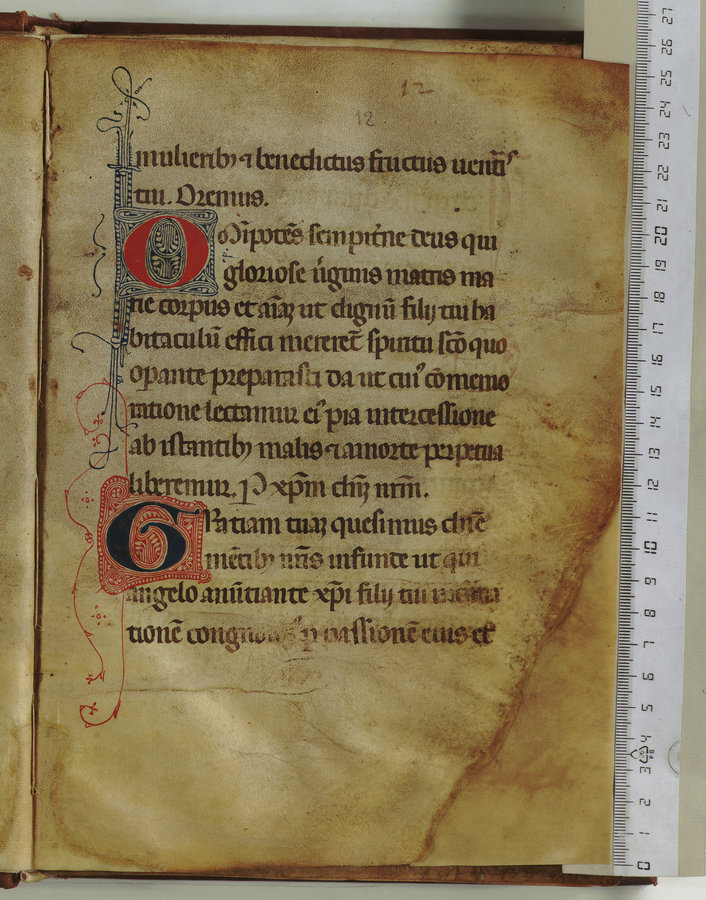 12
12
mulierib9 ⁊ benedictus fructus uent͛s
tui. Oremus.
Om̅ipote̅s sempit͛ne deus qui
gloriose u͛ginis matris ma
rie corpus et a͛i͛aꝫ ut dignu̅ filij tui ha
bitaculu̅ effici mereret᷑ spiritu sc̅o quo
op͛ante preparasti da ut cui9 co̅memo
ratione letamur ei9 pia intercessione
ab istantib9 malis ⁊ a morte perpetua
liberemur. P xp̅m dn̅ꝫ nr̅m.
GRatiam tuaꝫ quesimus dn̅e
me̅tib9 nr̅is infunde ut qui
angelo anu̅tiante xp̅i filij tui
tione̅ ꝑ passione̅ eius et
27 26 25 24 23 22 21 20 19 18 17 16 15 14 13 12 11 10 9 8 7 6 5 4 3 2 1 0